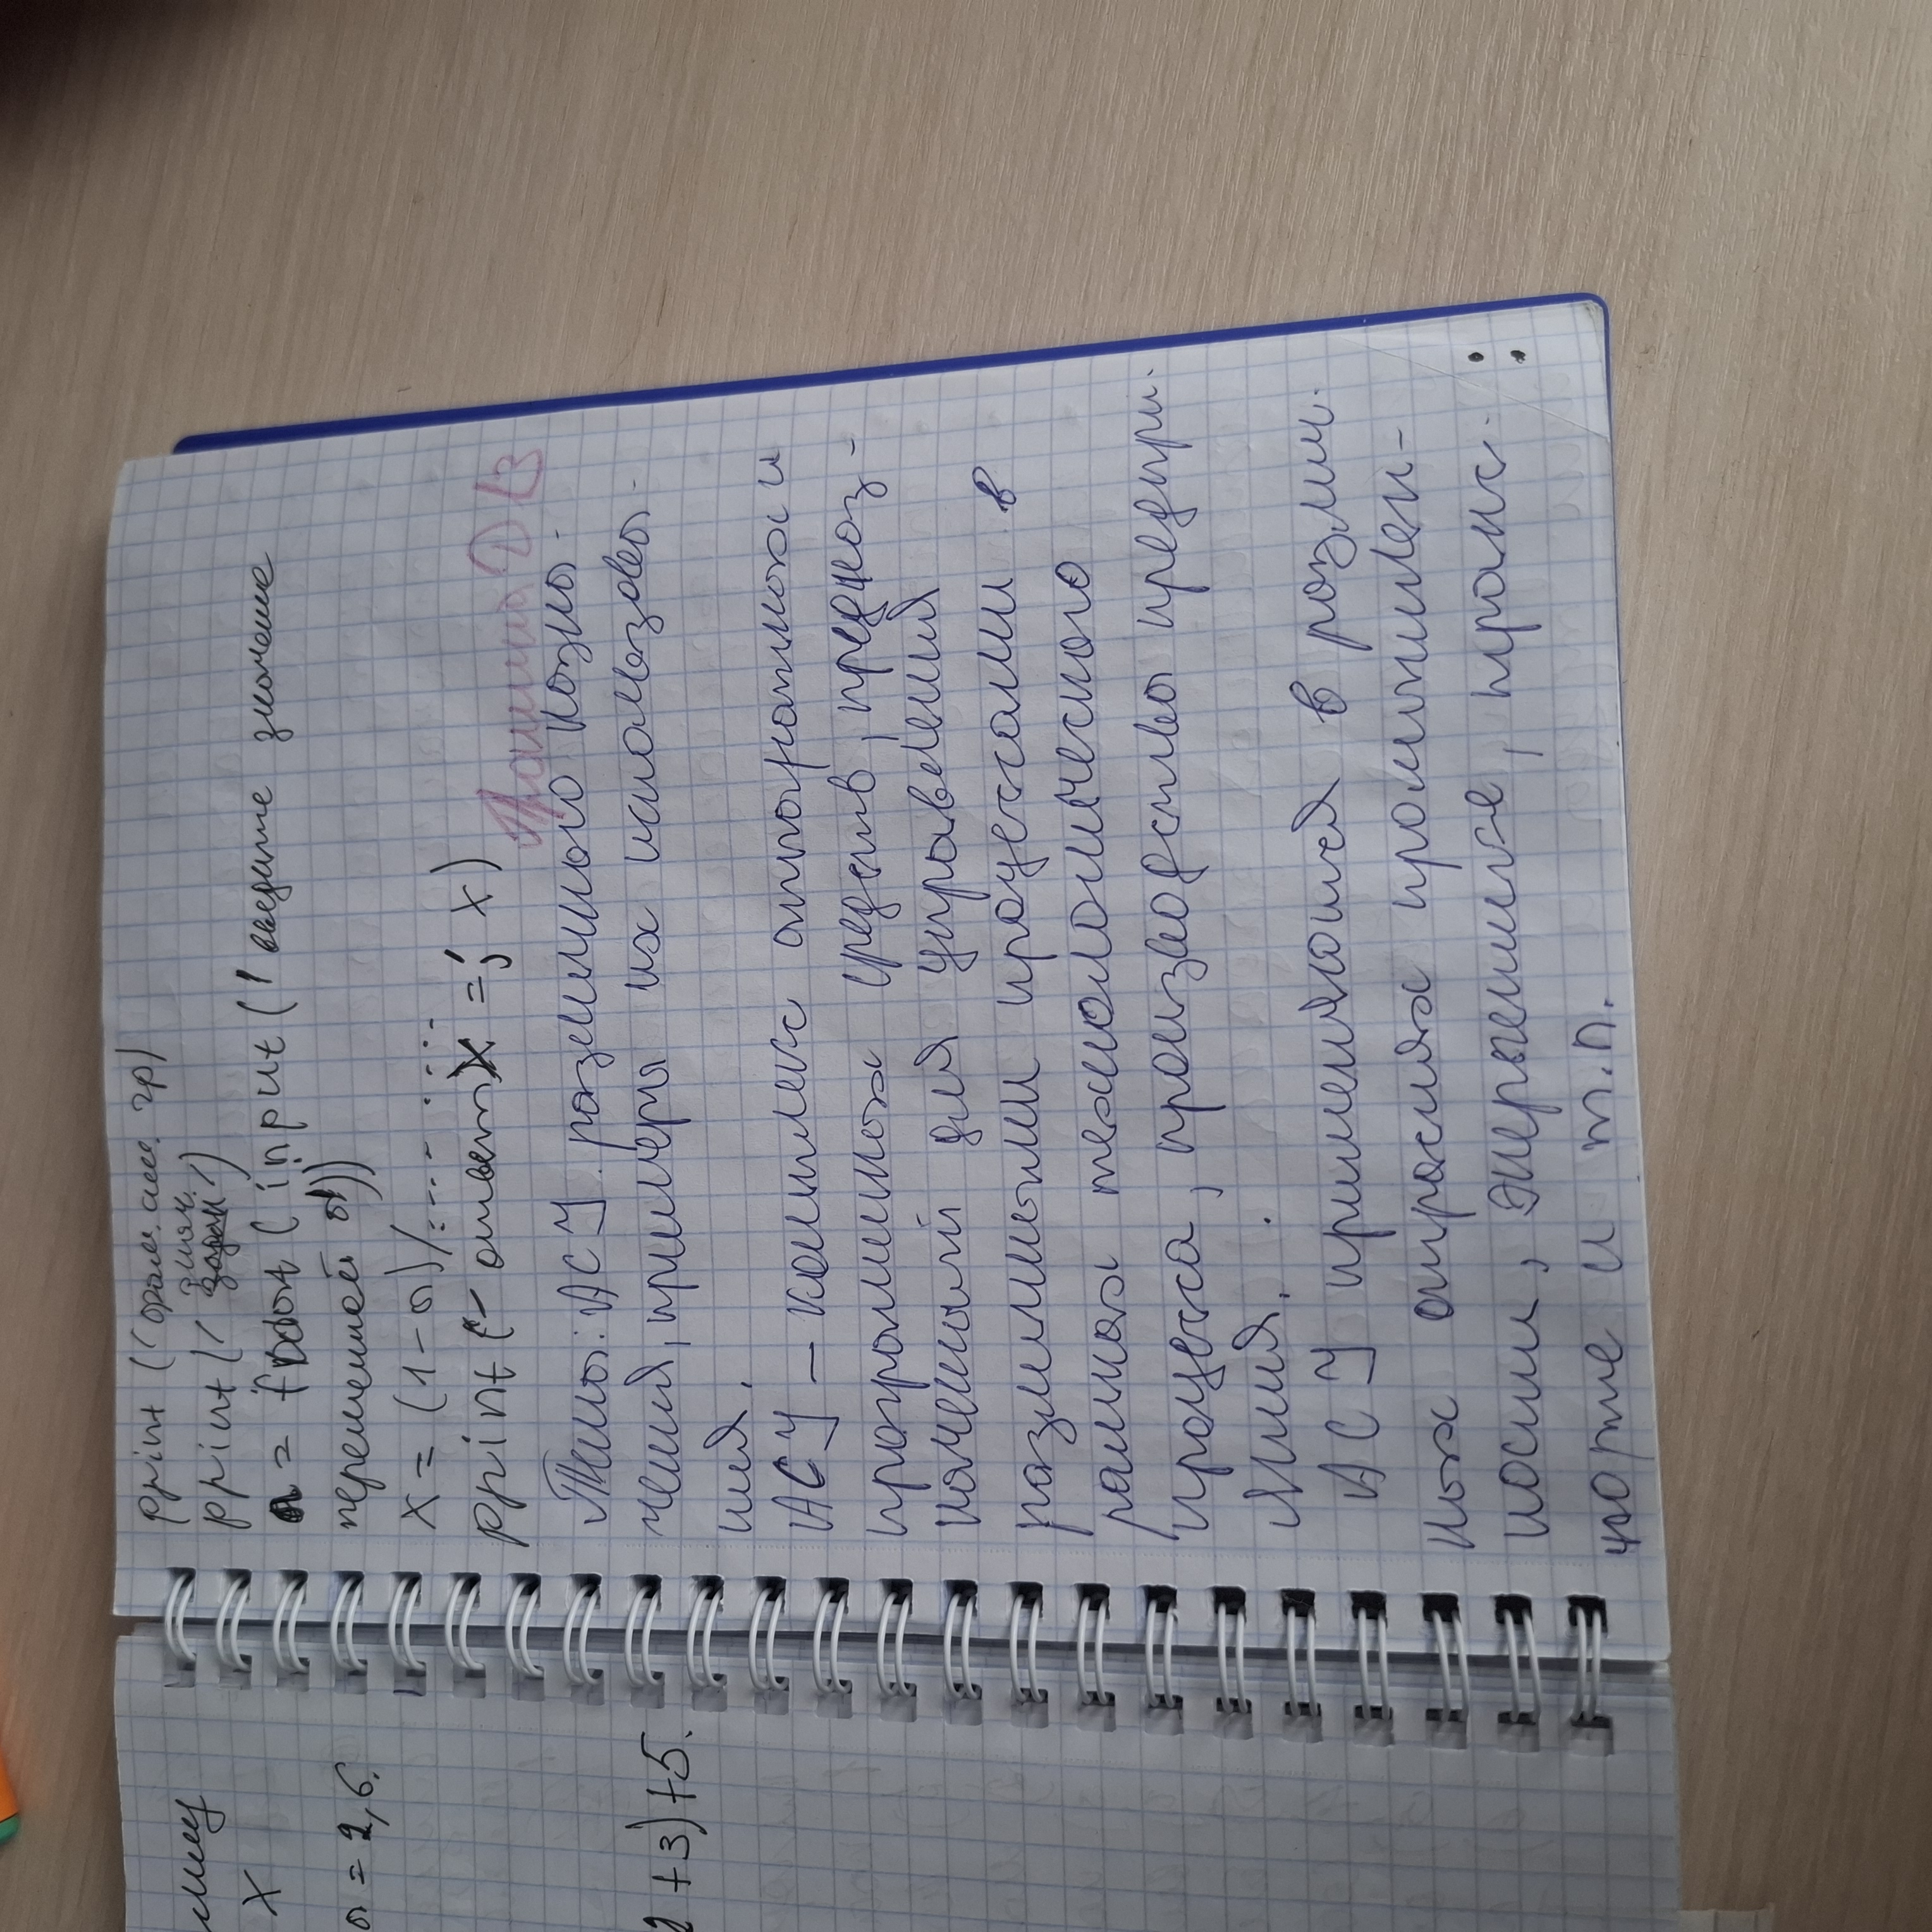 print ('
print ('
a = float (input (' введите значение
переменной а'))
x = (1-a)/
print (' ответ x =', x)
Прошито
Тема: АСУ различного назна-
чения, примеры их использова-
ния.
АСУ — комплекс аппаратных и
программных средств, предназ-
наченный для управления
различными процессами в
рамках технологического
процесса, производства предпри.
АСУ применяются в различ.
ных отраслях промышлен-
ности, энергетике, транс.
порте и т.п.
x
a = 2,6.
2 +3)+5.